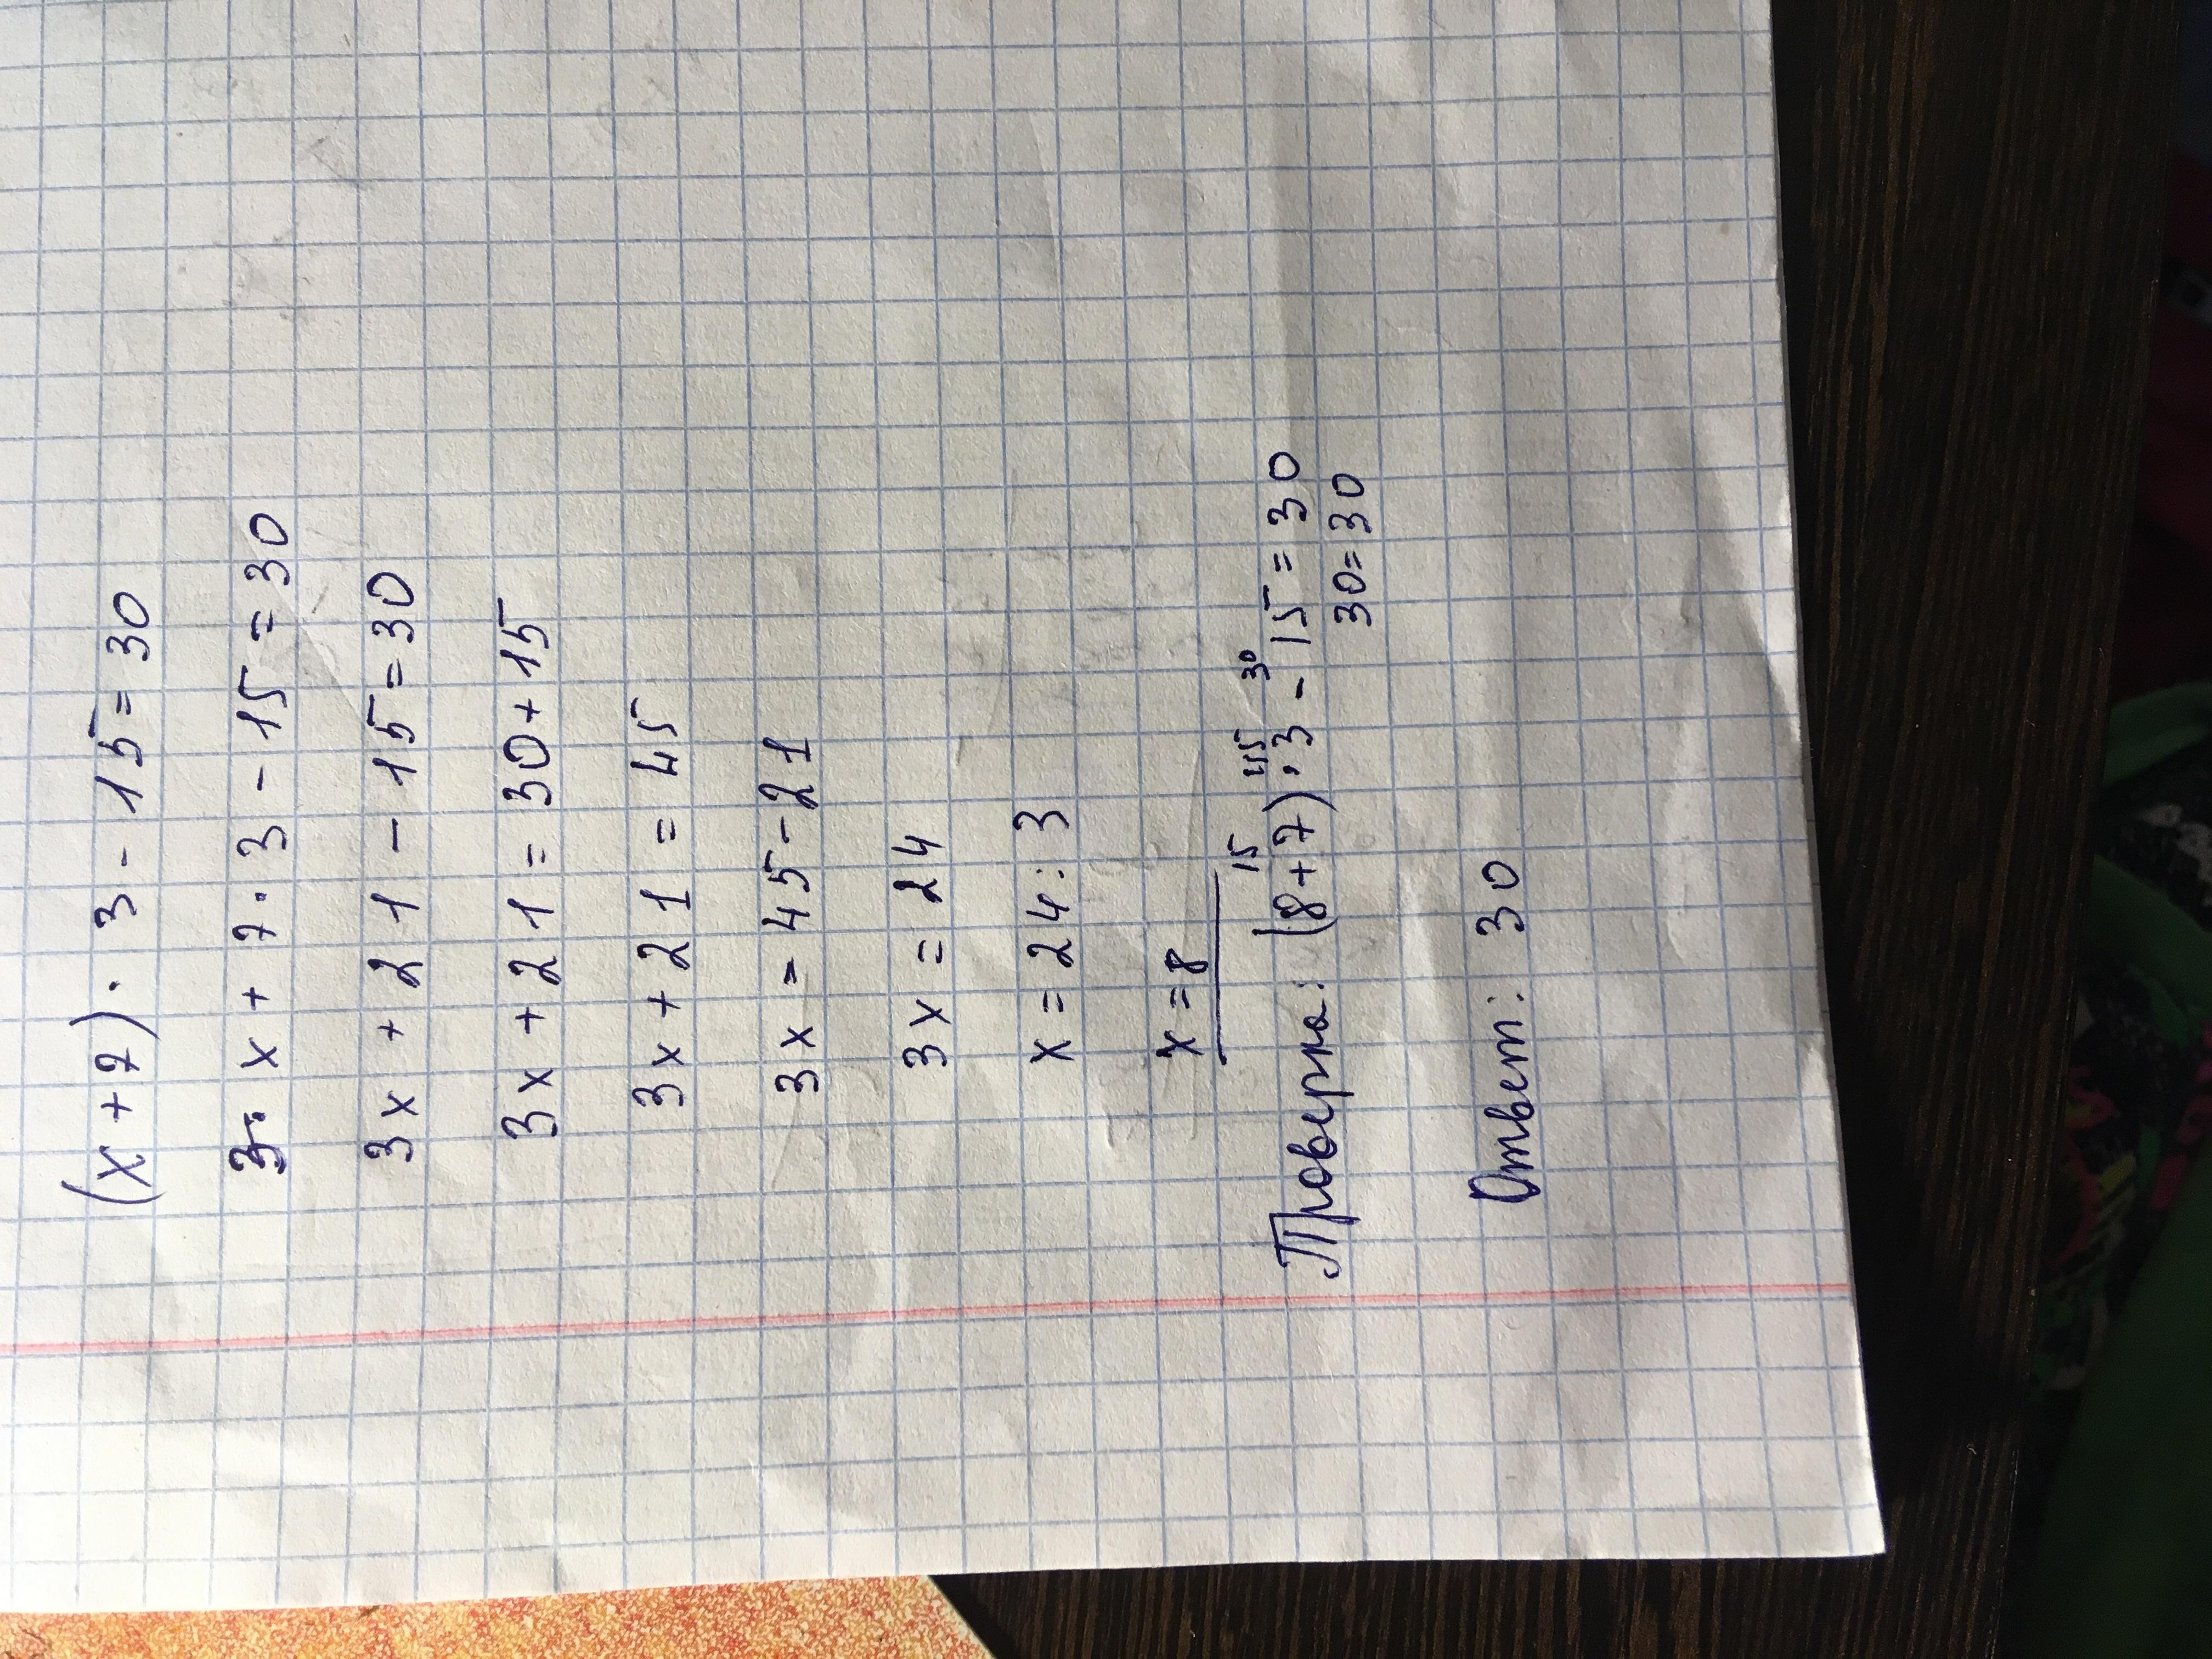 (x+7)·3-15=30
3·x+7·3-15=30
3x+21-15=30
3x+21=30+15
3x+21=45
3x=45-21
3x=24
x=24:3
x=8
15 45 30
Проверка: (8+7)·3-15=30
30=30
Ответ: 30